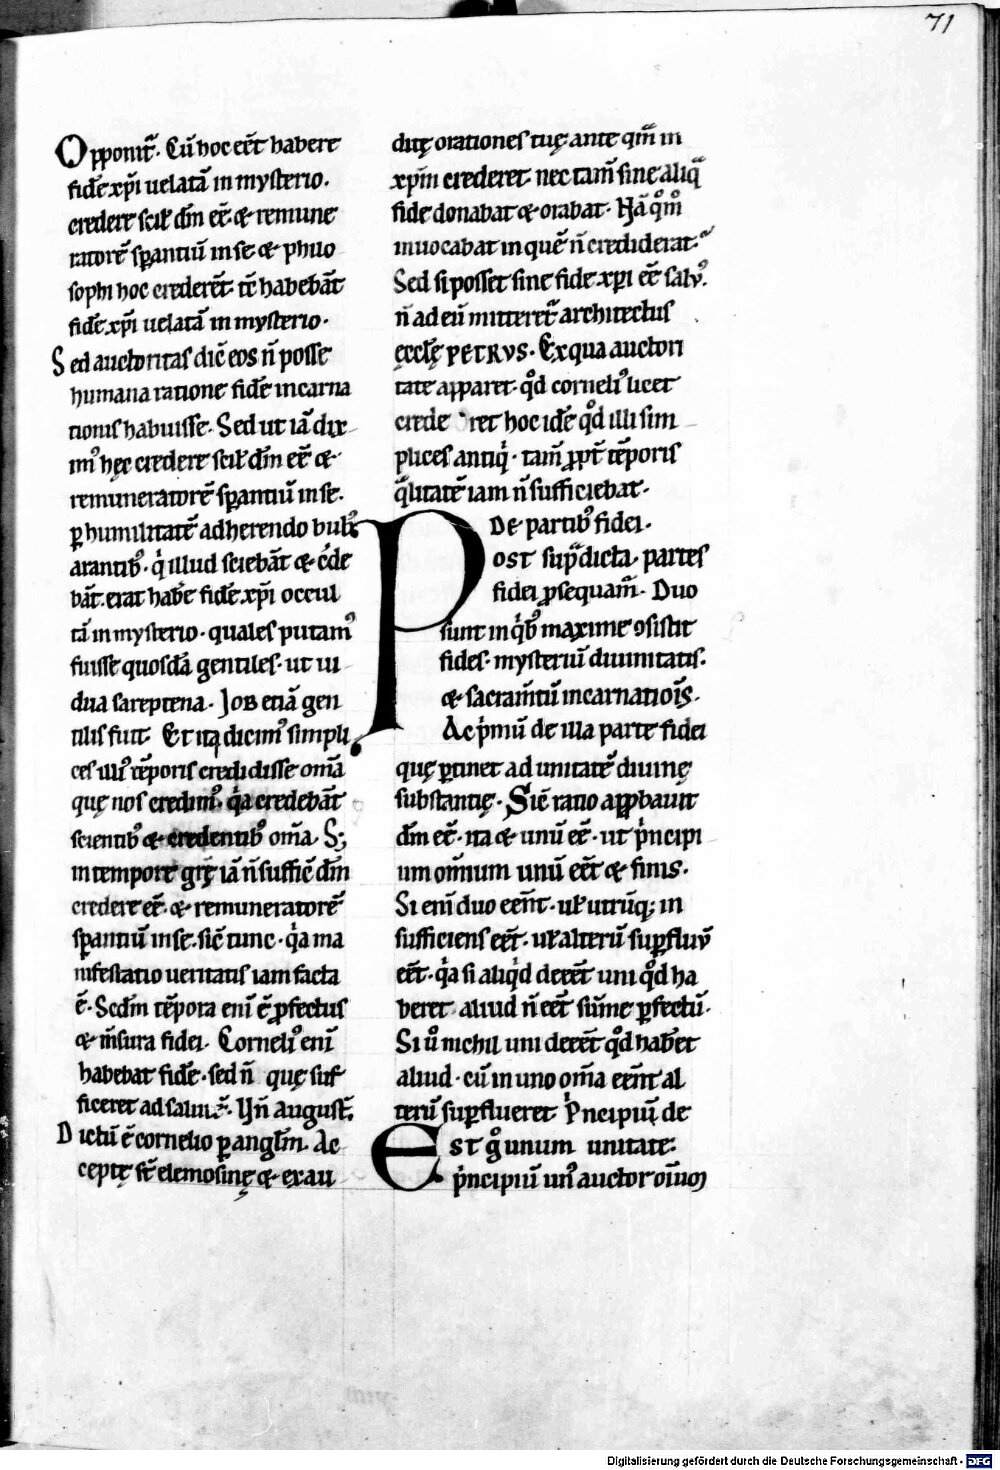 71
Opponit᷑. Cū hoc eēt habere
fidē xp̄i uelatā in mysterio.
credere scil' dm̄ eē. & remune
ratorē sꝑantiū in se & phylo
sophi hoc crederēt. tc̄ habebāt
fidē xp̄i uelatā in mysterio.
Sed auctoritas dic̄ eos n̄ posse
humana ratione fidē incarna
tionis habuisse. Sed ut iā dix
im᾿ hęc credere scil' dm̄ eē &
remuneratorē sꝑantiū in se.
ꝑ humilitatē adherendo bub᾿
arantib᾿. qͥ illud sciebāt & cͥde
bāt. erat habē fidē xp̄i occul
tā in mysterio. quales putam᾿
fuisse quosdā gentiles. ut ui
dua sareptena. Job etiā gen
tilis fuit. Et ita dicim᾿ simpli
ces illi᾿ tēporis credidisse om̄a
quę nos credim᾿. qͥa credebāt
scientib᾿ & credentib᾿ om̄a. S;
in tempore grę iā n̄ suffic̄ dm̄
credere eē. & remuneratorē
sꝑantiū in se. sic̄ tunc. qͥa ma
nifestatio ueritatis iam facta
ē. Scdm̄ tēpora enī ē ꝓfectus
& m̄sura fidei. Corneli᾿ enī
habebat fidē. sed n̄ quę suf
ficeret ad salutē. Un̄ august̄.
Dictū ē cornelio ꝑ angl̄m. Ac
ceptę st̄ elemosinę & exau
ditę orationes tuę ante qm̄ in
xp̄m crederet. nec tam̄ sine aliqᷓ
fide donabat & orabat. Nā qͦmͦ
inuocabat in quē n̄ crediderat.
Sed si posset sine fide xp̄i eē salv᾿.
n̄ ad eū mitteret᷑ architectus
ęcclę PETRVS. Ex qua auctori
tate apparet. qͦd corneli᾿ licet
crede ret hoc idē qͦd illi sim
plices antiqͥ. tam̄ ꝓpt̄ tēporis
qᷓlitatē iam n̄ sufficiebat.
De partib᾿ fidei.
POST suꝑdicta. partes
fidei ꝓsequam᷑. Duo
sunt in qͥb᾿ maxime ꝯsistit
fides. mysteriū diuinitatis.
& sacram̄tū incarnatiōis.
Ac pͥmū de illa parte fidei
quę ꝑtinet ad unitatē diuinę
substantię. Sic̄ ratio apꝓbauit
dm̄ eē. ita & unū eē. ut pͥncipi
um om̄ium unū eēt & finis.
Si enī duo eēnt. ul' utrūq; in
sufficiens eēt. ul' alterū suꝑfluv̄
eēt. qͥa si aliqͥd deeēt uni qͦd ha
beret aliud n̄ eēt sūme ꝑfectū.
Si ͦu nichil uni deeēt qͦd hab̄et
aliud. cū in uno om̄a eēnt al
terū suꝑflueret. Pͥncipiū de
EST gͦ unum unitate.
pͥncipiū un᾿ auctor oīuꝫ
Digitalisierung gefördert durch die Deutsche Forschungsgemeinschaft - DFG